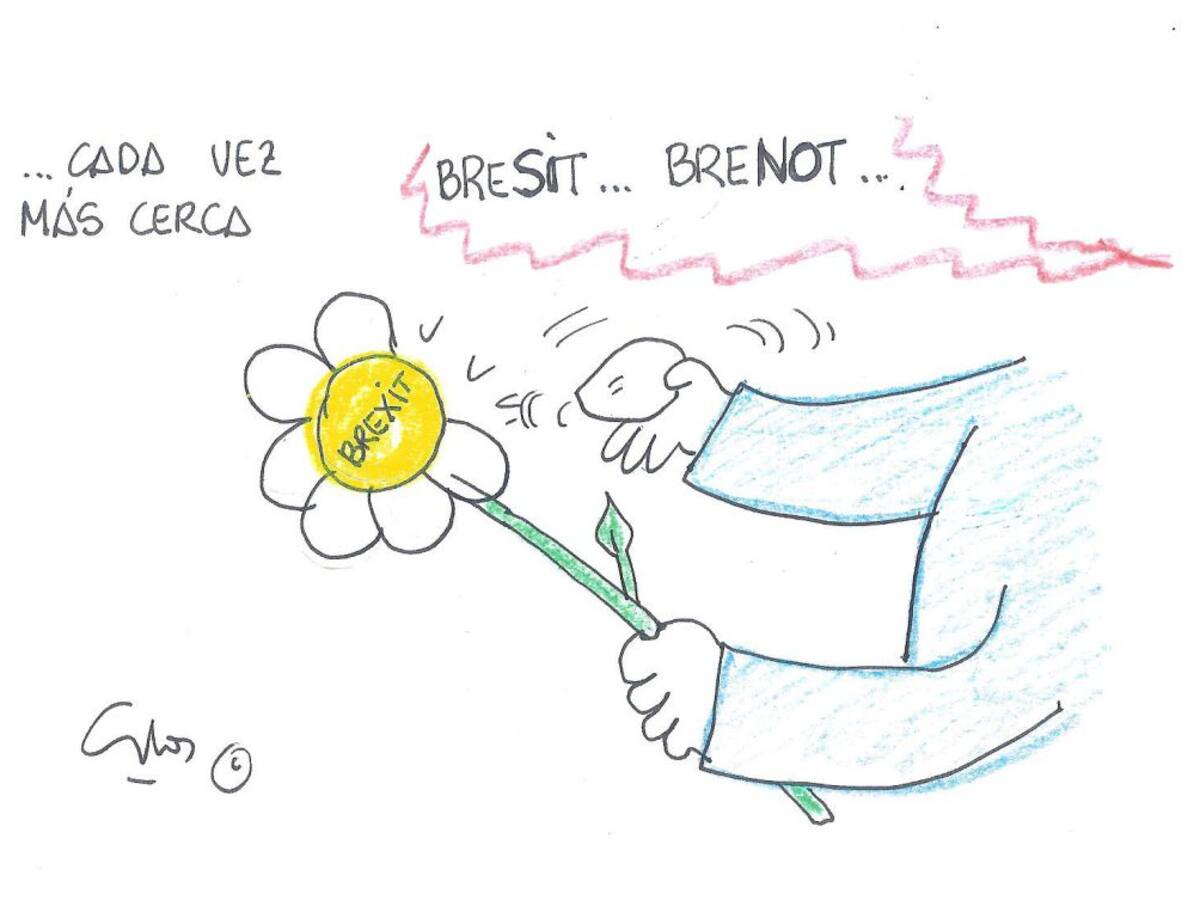 ...CADA VEZ
MÁS CERCA
BRESiT... BRENOT...
BREXiT
©